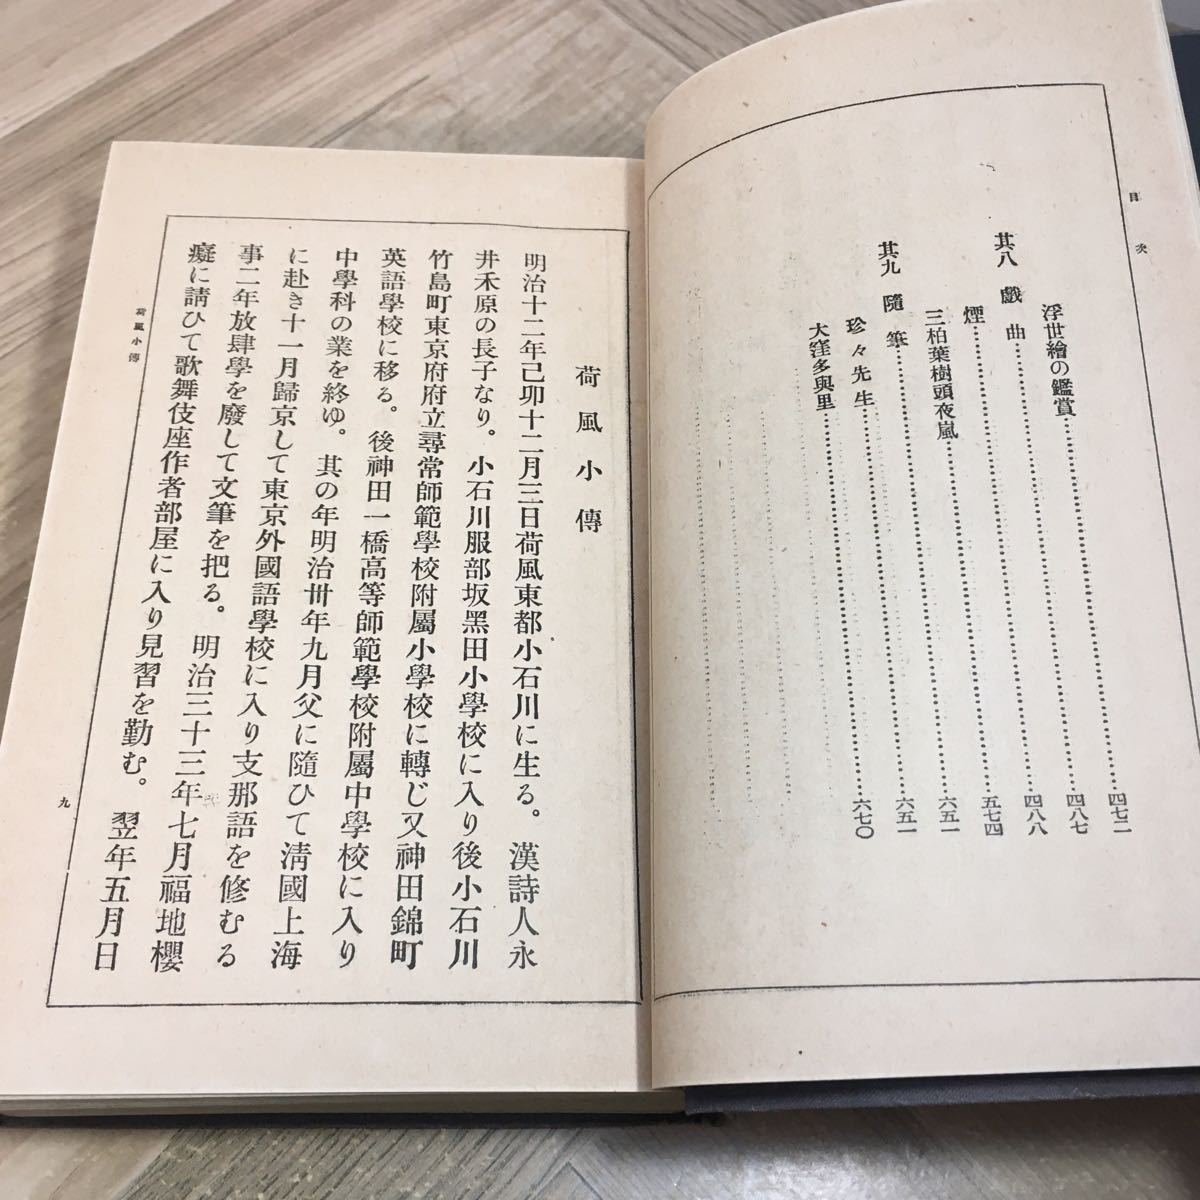 目次
浮世繪の鑑賞……四七二
其八 戲曲……四八七
煙……四八八
三柏葉樹頭夜嵐……五七四
其九 隨筆……六五一
珍々先生……六五一
大窪多與里……六七〇
荷風小傳
明治十二年己卯十二月三日荷風東都小石川に生る。漢詩人永
井禾原の長子なり。小石川服部坂黑田小學校に入り後小石川
竹島町東京府府立尋常師範學校附屬小學校に轉じ又神田錦町
英語學校に移る。後神田一橋高等師範學校附屬中學校に入り
中學科の業を終ゆ。其の年明治卅年九月父に隨ひて淸國上海
に赴き十一月歸京して東京外國語學校に入り支那語を修むる
事二年放肆學を廢して文筆を把る。明治三十三年七月福地櫻
癡に請ひて歌舞伎座作者部屋に入り見習を勤む。翌年五月日
荷風小傳
九